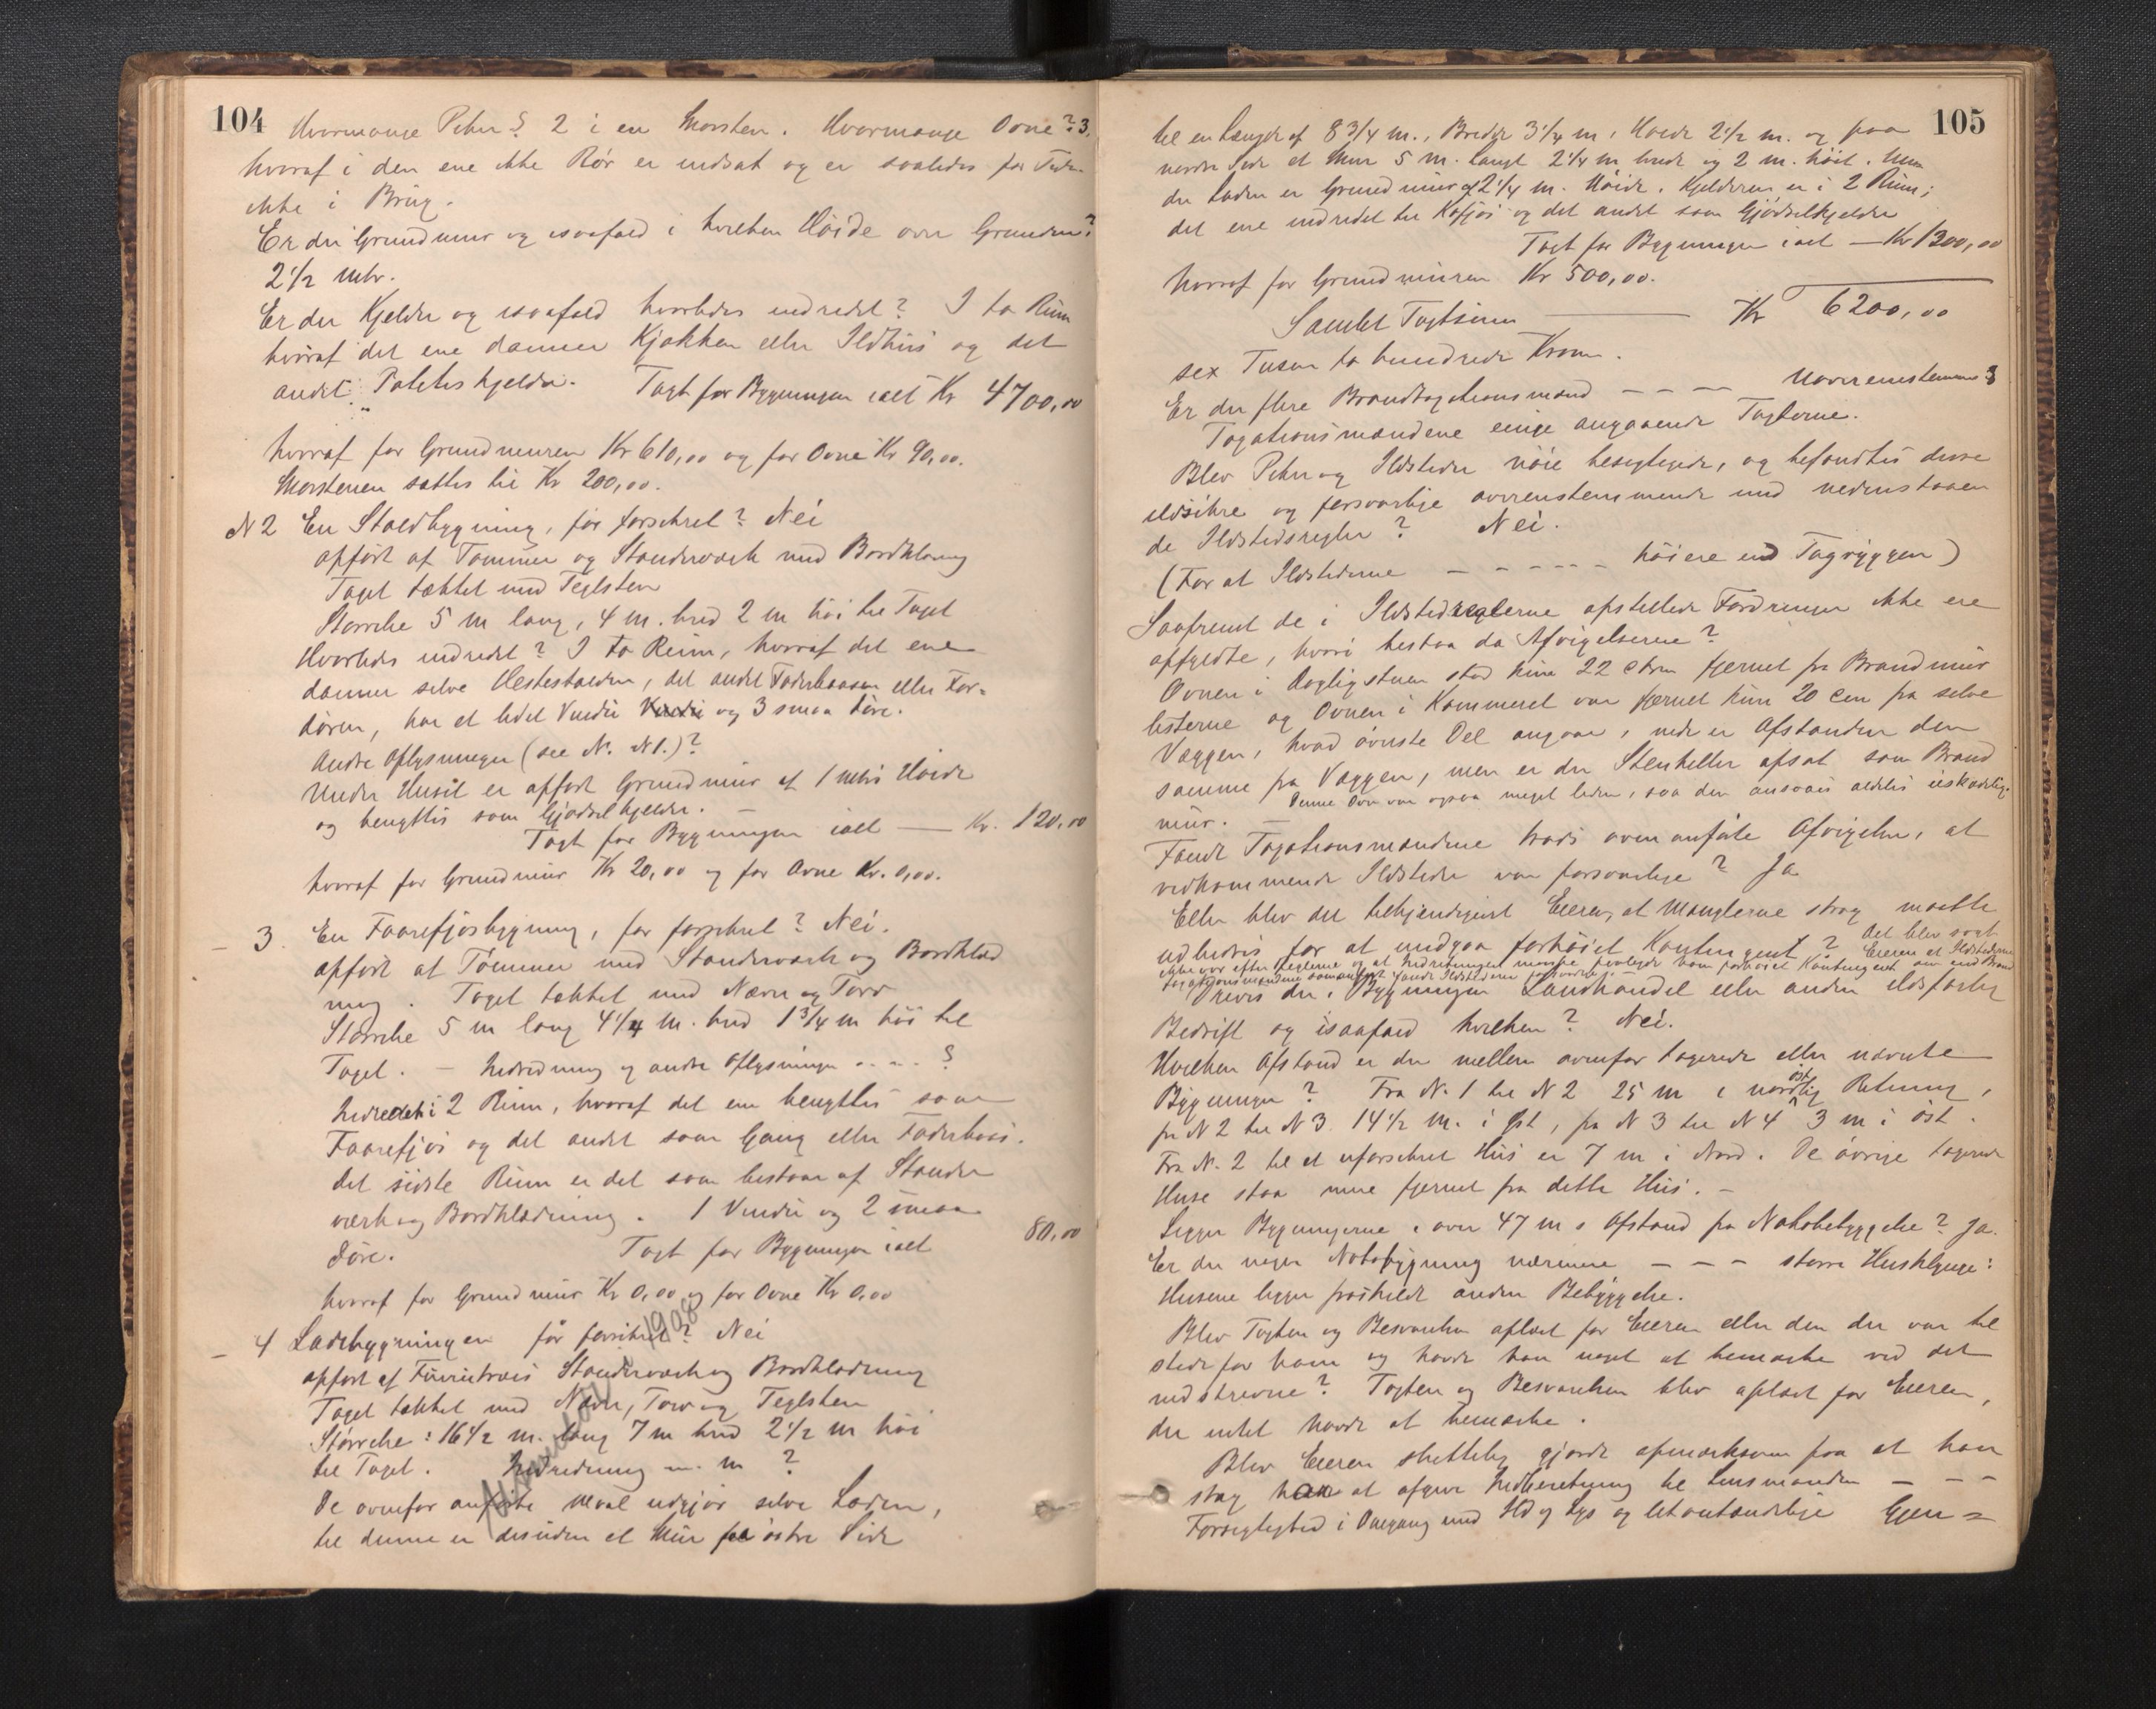 104
Hvormange Peber? 2 i en Skorsten. Hvormange Ovne? 3.
hvoraf i den ene ikke Rør er indsat og er saaledes for Tiden
ikke i Brug.
Er der Grundmur og isaafald i hvilken Høide over Grunden?
2 1/2 mtr.
Er der Kjelder og isaafald hvorledes indredet? I to Rum
hvoraf det ene danner Kjøkken eller Ildhus og det
andet Potetskjelder. Taxt for Bygningen ialt Kr 4700,00
hvoraf for Grundmuren Kr 610,00 og for Ovne Kr 90,00.
Skorstenen sættes til Kr 200,00.
N 2 En Staldbygning, før forsikret? Nei
opført af Tømmer og Standerværk med Bordklædning
Taget tækket med Teglsten
Størrelse 5 m lang, 4 m. bred 2 m høi til Taget
Hvorledes indredet? I to Rum, hvoraf det ene
danner selve Hestestalden, det andet Foderbaasen eller For-
døren, har et lidet Vindu og 3 smaa Døre.
Andre Oplysninger (see N. N 1.)?
Under Huset er opført Grundmur af 1 Meters Høide
og benyttes som Gjødselkjelder. —
Taxt for Bygningen ialt — Kr. 120,00
hvoraf for Grundmur Kr 20,00 og for Ovne Kr. 0,00.
— 3. En Faarefjøsbygning, før forsikret? Nei.
opført af Tømmer med Standerværk og Bordklæd
ning. Taget tækket med Næver og Torv
Størrelse 5 m lang 4 1/4 m. bred 1 3/4 m høi til
Taget. — Indredning og andre Oplysninger ....?
Indredet i 2 Rum, hvoraf det ene benyttes som
Faarefjøs og det andet som Gang eller Foderhus.
det sidste Rum er det som bestaar af Stander
værk og Bordklædning. 1 Vindu og 2 smaa
Døre. Taxt for Bygningen ialt 80,00
hvoraf for Grundmur Kr 0,00 og for Ovne Kr 0,00
— 4 Ladebygningen før forsikret? Nei
opført af Furutræes Standerværk og Bordklædning
Taget tækket med Næver, Torv og Teglsten
Størrelse: 16 1/2 m. lang 7 m bred 2 1/2 m høi
til Taget. Indredning m. m ?
De ovenfor anførte Maal udgjør selve Laden,
til denne er desuden et Skur paa østre Side
1908
105
til en Længde af 8 3/4 m., Bredde 3 1/4 m, Høide 2 1/2 m. og paa
nordre Side et Skur 5 m. langt 2 1/4 m bredt og 2 m. høit. Un
der Laden er Grundmur af 2 1/4 m. Høide. Kjelderen er i 2 Rum;
det ene indredet til Kofjøs og det andet som Gjødselkjelder
Taxt for Bygningen ialt — Kr 1300,00
hvoraf for Grundmuren Kr 500,00.
Samlet Taxtsum — Kr 6200,00
sex Tusen to hundrede Kroner.
Er der flere Brandtaxationsmænd — — — Uoverensstemmelse?
Taxationsmændene enige angaaende Taxterne.
Blev Peber og Ildsteder nøie besigtigede, og befandtes disse
ildsikre og forsvarlige overensstemmende med nedenstaaen
de Ildstedsregler? Nei.
(For at Ildstederne — — — — — høiere end Tagryggen)
Saafremt de i Ildstedreglerne opstillede Fordringer ikke ere
opfyldte, hvori bestaa da Afvigelserne?
Ovnen i Dagligstuen stod kun 22 ctm fjernet fra Brandmur
listerne og Ovnen i Kammeret var fjernet kun 20 cm fra selve
Væggen, hvad øverste Del angaar, nede er Afstanden den
samme fra Væggen, men er der Stenheller opsat som Brand
mur. — Denne Ovn var ogsaa meget liden, saa den ansaaes aldeles uskadelig.
Fandt Taxationsmændene trods ovenanførte Afvigelser, at
vedkommende Ildsteder var forsvarlige? Ja
Eller blev det tilkjendegivet Eieren, at Manglerne strax maatte
udbedres for at undgaa forhøiet Kontingent? Det blev sagt
Eieren at Ildstederne
ikke var efter Reglerne og at Indretningen maaske paalagde ham forhøiet Kontingent om end Brand
taxationsmændene fandt Ildstederne forsvarlige. —
Drives der i Bygningen Landhandel eller anden ildsfarlig
Bedrift og isaafald hvilken? Nei.
Hvilken Afstand er der mellem ovenfor taxerede eller nævnte
Bygninger? Fra N. 1 til N 2 25 m i nordøstlig Retning,
fra N 2 til N 3 14 1/2 m. i Øst, fra N 3 til N 4 3 m i øst.
Fra N. 2 til et uforsikret Hus er 7 m i Nord. De øvrige taxerede
Huse staa mere fjernet fra dette Hus. —
Ligger Bygningerne i over 47 m s Afstand fra Nabobebyggelse? Ja.
Er der nogen Nabobygning nærmere — — — større Husklynge:
Husene ligger fraskildt anden Bebyggelse.
Blev Taxten og Beskrivelsen oplæst for Eieren eller den der var til
stede for ham og havde han noget at bemærke ved det
nedskrevne? Taxten og Beskrivelsen blev oplæst for Eieren,
der intet havde at bemærke.
Blev Eieren skriftlig gjorde opmærksom paa at han
strax har at afgive Indberetning til Lensmanden — — —
Forsigtighed i Omgang med Ild og Lys og letantændelige Gjen=